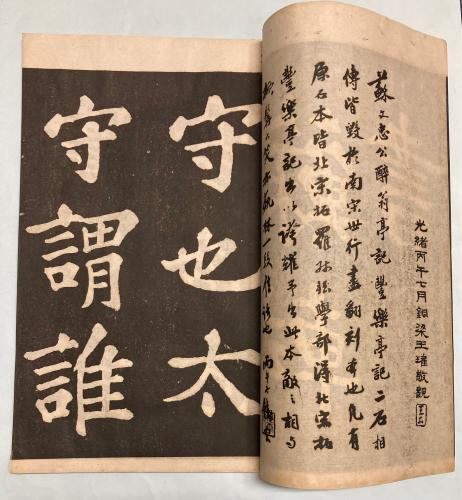 光緒丙午七月銅梁王瓘敬觀
蘇文忠公醉翁亭記豐樂亭記二石相
傳皆毀於南宋世行盡翻刻本也凡有
原石本皆北宋拓羅學部得北宋拓
豐樂亭記出以誇耀予出此本敵之相與
林一段佳話也
守也太
守謂誰